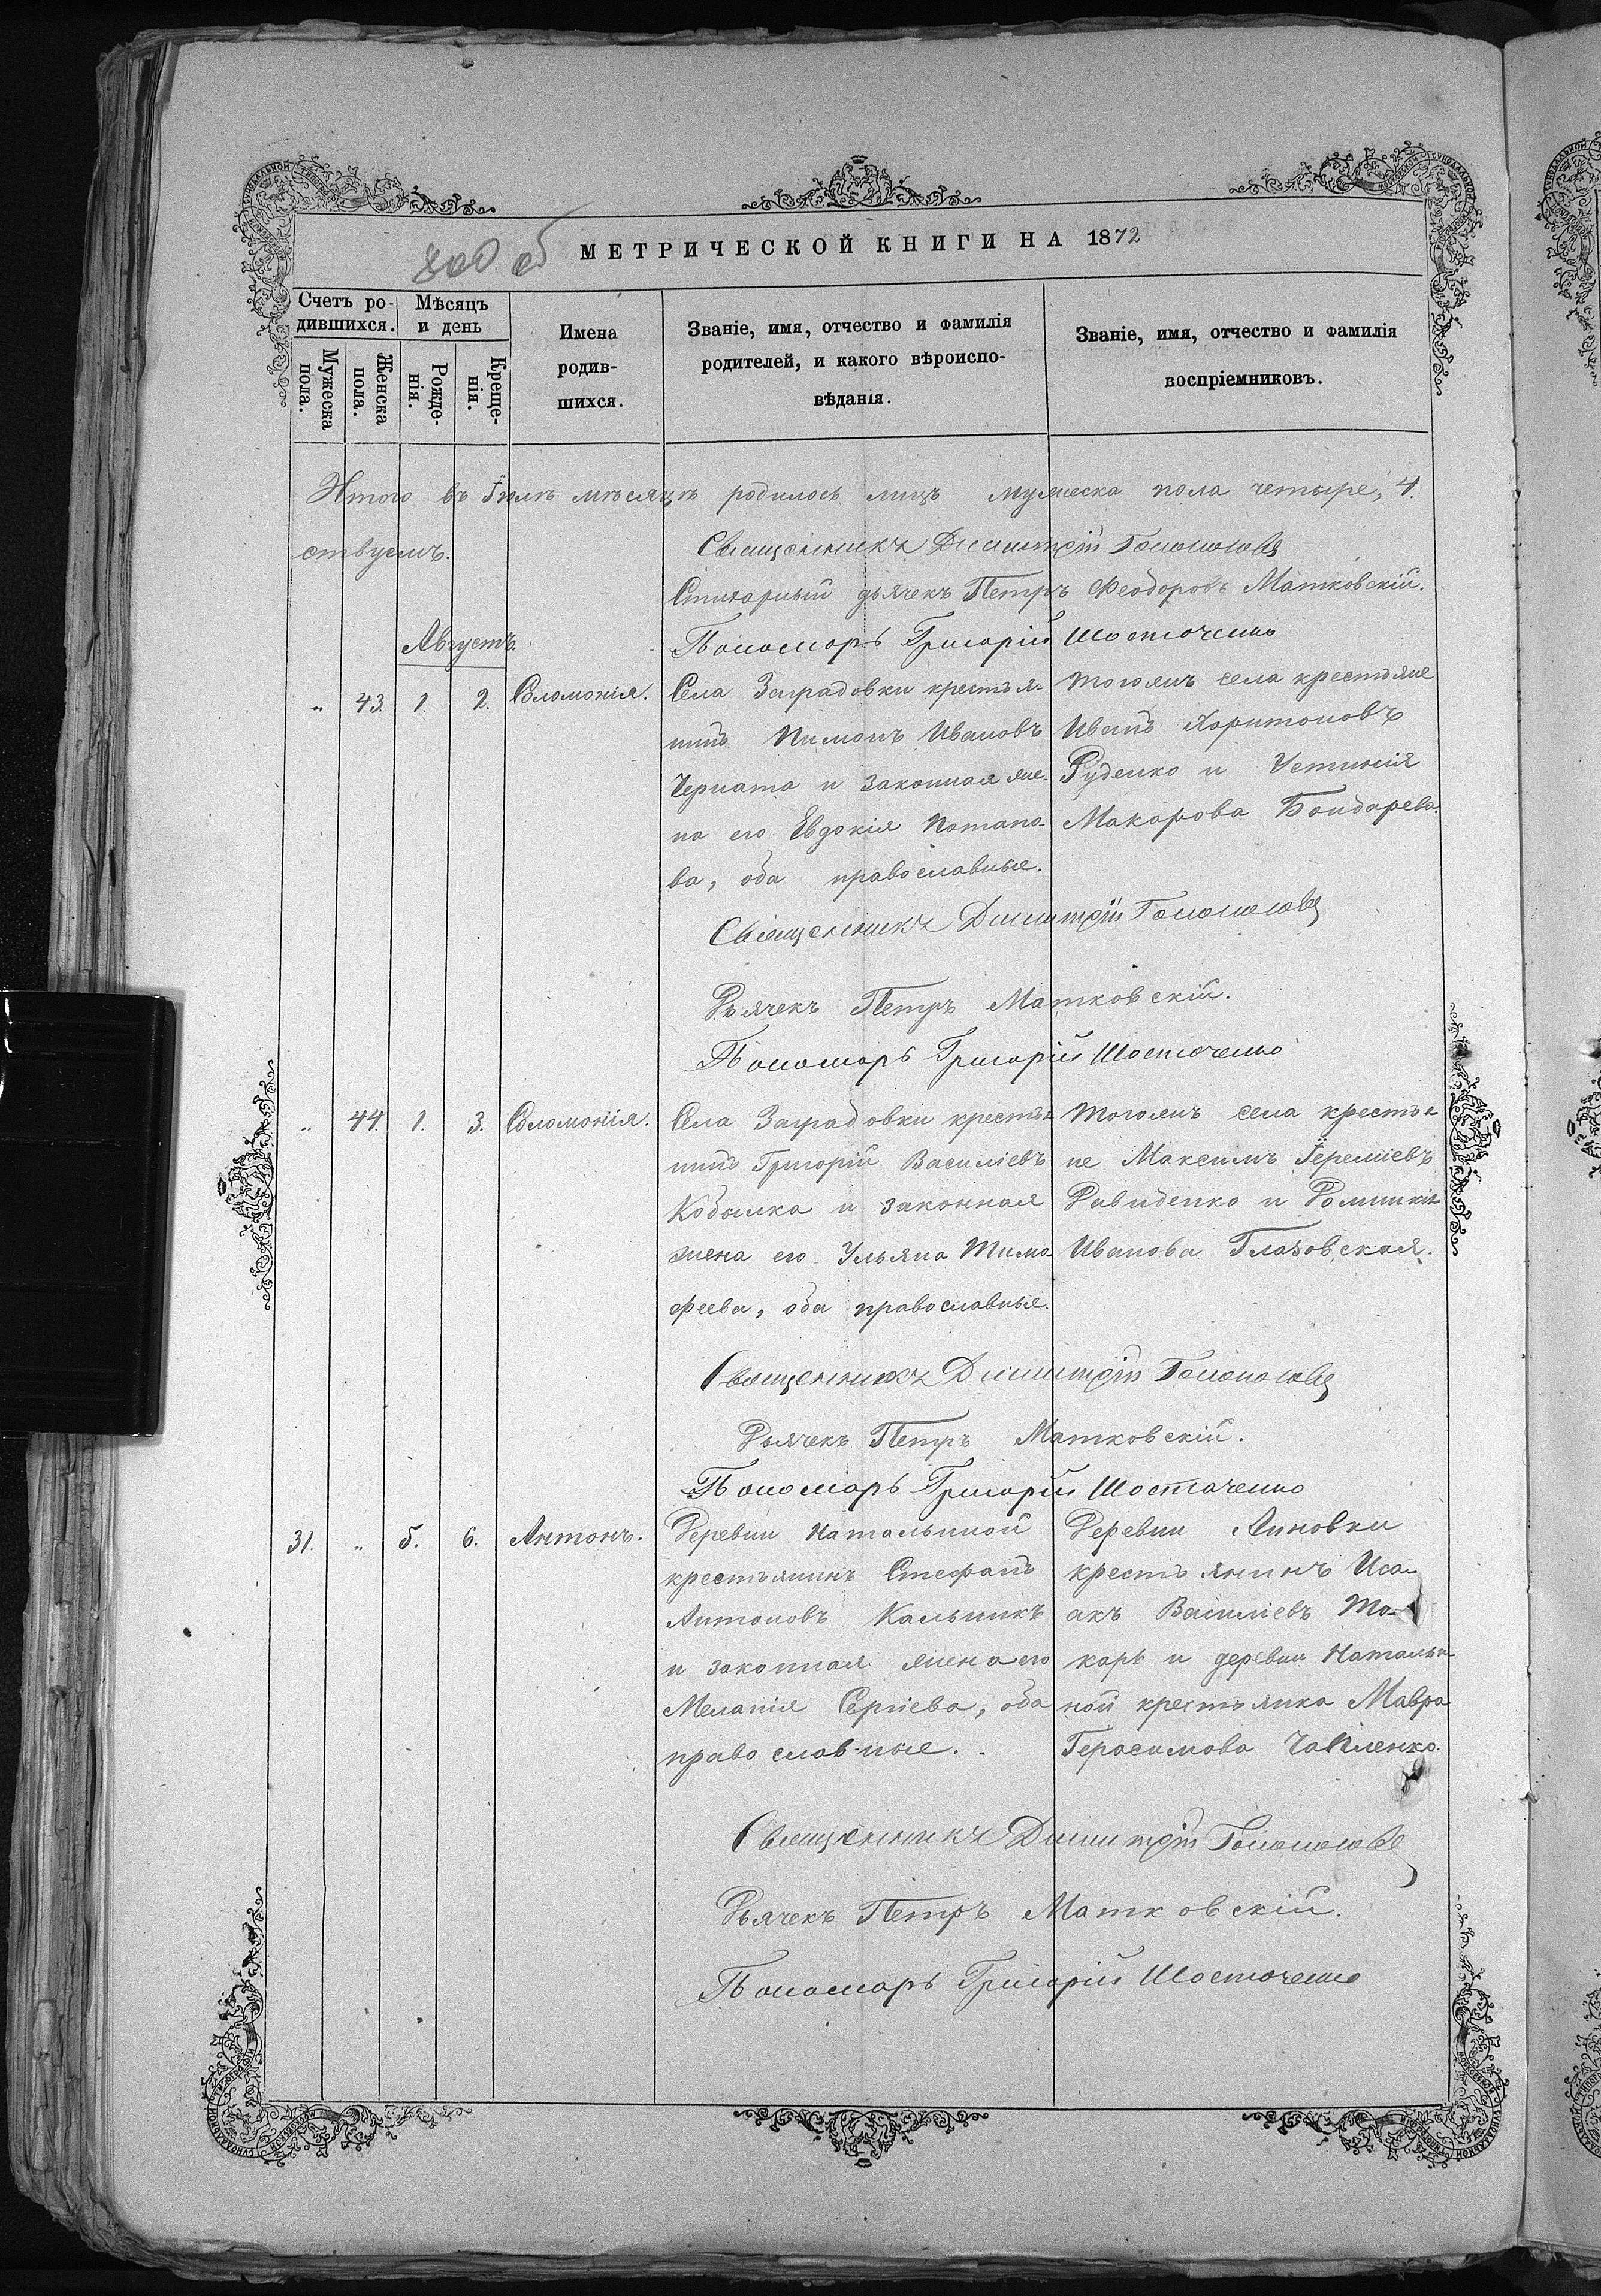 МЕТРИЧЕСКОЙ КНИГИ НА 1872
Счетъ ро-
дившихся.
Мѣсяцъ
и день
Мужеска
пола.
Женска
пола.
Рожде-
нія.
Креще-
нія.
Имена
родив-
шихся.
Званіе, имя, отчество и фамилія
родителей, и какого вѣроиспо-
вѣданія.
Званіе, имя, отчество и фамилія
воспріемниковъ.
Итого въ Іюлѣ мѣсяцѣ родилось лицъ мужеска пола четыре, 4.
ствуемъ.
Священникъ Димитрій
Стихарный дьячекъ Петръ Феодоровъ Матковскій.
Пономарь Григорій Шостаченко
Августъ.
„ 43. 1. 2. Соломонія.
Села Заградовки крестья-
нинъ Пимонъ Ивановъ
Черната и законная же-
на его Евдокія Потапо-
ва, оба православные.
тогожъ села крестьяне
Иванъ Харитоновъ
Руденко и Устинія
Макарова Бондарева.
Священникъ Димитрій
Дьячекъ Петръ Матковскій.
Пономарь Григорій Шостаченко
„ 44. 1. 3. Соломонія.
Села Заградовки крестья
нинъ Григорій Василіевъ
Кобылка и законная
жена его Ульяна Тимо-
феева, оба православные.
тогожъ села крестья
не Максимъ Іереміевъ
Давиденко и Домникія
Иванова Глазовская.
Священникъ Димитрій
Дьячекъ Петръ Матковскій.
Пономарь Григорій Шостаченко
31. „ 5. 6. Антонъ.
Деревни Натальиной
крестьянинъ Стефанъ
Антоновъ Кальникъ
и законная жена его
Меланія Сергіева, оба
православные.
Деревни Анновки
крестьянинъ Иса-
акъ Василіевъ То-
карь и деревни Натальи-
ной крестьянка Мавра
Герасимова Чапленко.
Священникъ Димитрій
Дьячекъ Петръ Матковскій.
Пономарь Григорій Шостаченко